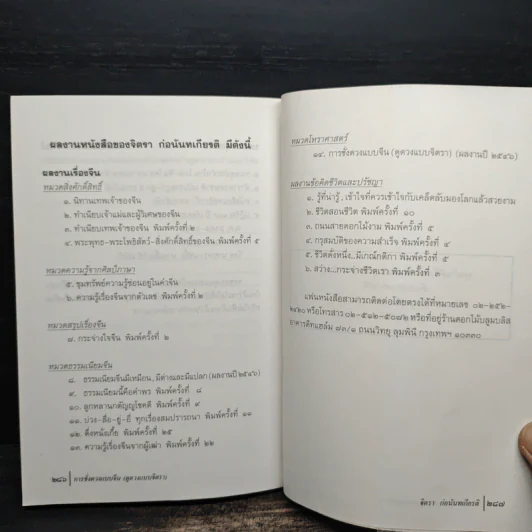 ผลงานหนังสือของจิตรา ก่อนันทเกียรติ มีดังนี้
ผลงานเรื่องจีน
หมวดสิ่งศักดิ์สิทธิ์
๑. นิทานเทพเจ้าของจีน
๒. ทำเนียบเจ้าแม่และผู้วิเศษของจีน
๓. ทำเนียบเทพเจ้าของจีน พิมพ์ครั้งที่ ๒
๔. พระพุทธ-พระโพธิสัตว์-สิ่งศักดิ์สิทธิ์ของจีน พิมพ์ครั้งที่ ๕
หมวดความรู้จากศิลป์ภาษา
๕. ขุมทรัพย์ความรู้ซ่อนอยู่ในคำจีน
๖. ความรู้เรื่องจีนจากตัวเลข พิมพ์ครั้งที่ ๒
หมวดสรุปเรื่องจีน
๗. กระจ่างใจจีน พิมพ์ครั้งที่ ๒
หมวดธรรมเนียมจีน
๘. ธรรมเนียมจีนมีเหมือน, มีต่างและมีแปลก (ผลงานปี ๒๕๔๖)
๙. ธรรมเนียมนี้คือคำพร พิมพ์ครั้งที่ ๘
๑๐. ลูกหลานกตัญญูโชคดี พิมพ์ครั้งที่ ๙
๑๑. บ่วง-สื่อ-ยู่-อี่ ทุกเรื่องสมปรารถนา พิมพ์ครั้งที่ ๑๑
๑๒. ตึ่งหนั่งเกี้ย พิมพ์ครั้งที่ ๒๕
๑๓. ความรู้เรื่องจีนจากผู้เฒ่า พิมพ์ครั้งที่ ๒๒
๒๘๖ การชั่งดวงแบบจีน (ดูดวงแบบจิตรา)
หมวดโหราศาสตร์
๑๔. การชั่งดวงแบบจีน (ดูดวงแบบจิตรา) (ผลงานปี ๒๕๔๖)
ผลงานข้อคิดชีวิตและปรัชญา
๑. รู้ที่น่ารู้, เข้าใจที่ควรเข้าใจกับเคล็ดลับมองโลกแล้วสวยงาม
๒. ชีวิตสอนชีวิต พิมพ์ครั้งที่ ๑๐
๓. ถนนสายดอกไม้งาม พิมพ์ครั้งที่ ๕
๔. กรุสมบัติของความสำเร็จ พิมพ์ครั้งที่ ๔
๕. ชีวิตตั้งหนึ่ง...มีเกณิกติกา พิมพ์ครั้งที่ ๕
๖. สว่าง...กระจ่างชีวิตเรา พิมพ์ครั้งที่ ๓
แฟนหนังสือสามารถติดต่อโดยตรงได้ที่หมายเลข ๐๒-๒๕๒-
๒๔๒๐ หรือโทรสาร ๐๒-๕๑๒-๕๐๗๒ หรือที่อยู่ร้านดอกไม้บลูมบลิส
อาคารคิทแฮล์ม ๙๓/๑ ถนนวิทยุ ลุมพินี กรุงเทพฯ ๑๐๓๓๐
จิตรา ก่อนันทเกียรติ ๒๘๗